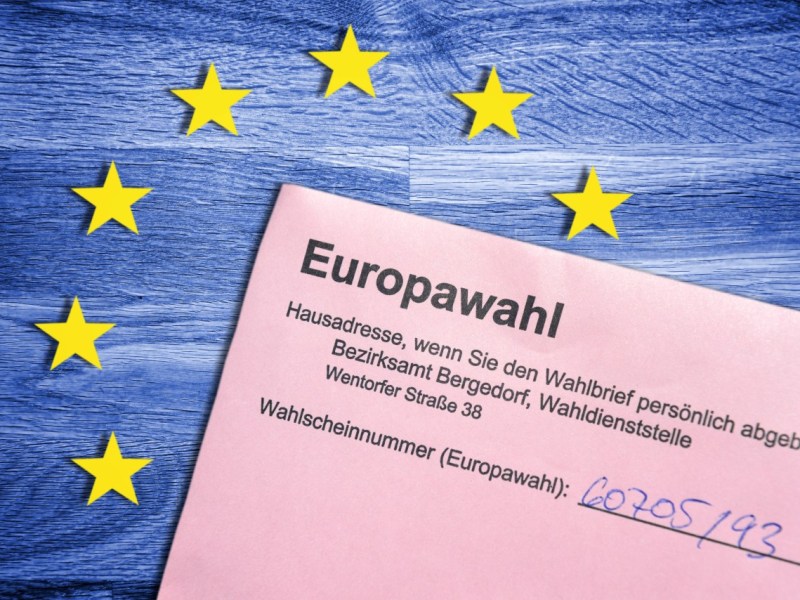 Europawahl
Hausadresse, wenn Sie den Wahlbrief persönlich abgeb
Bezirksamt Bergedorf, Wahldienststelle
Wentorfer Straße 38
Wahlscheinnummer (Europawahl): 60705/93